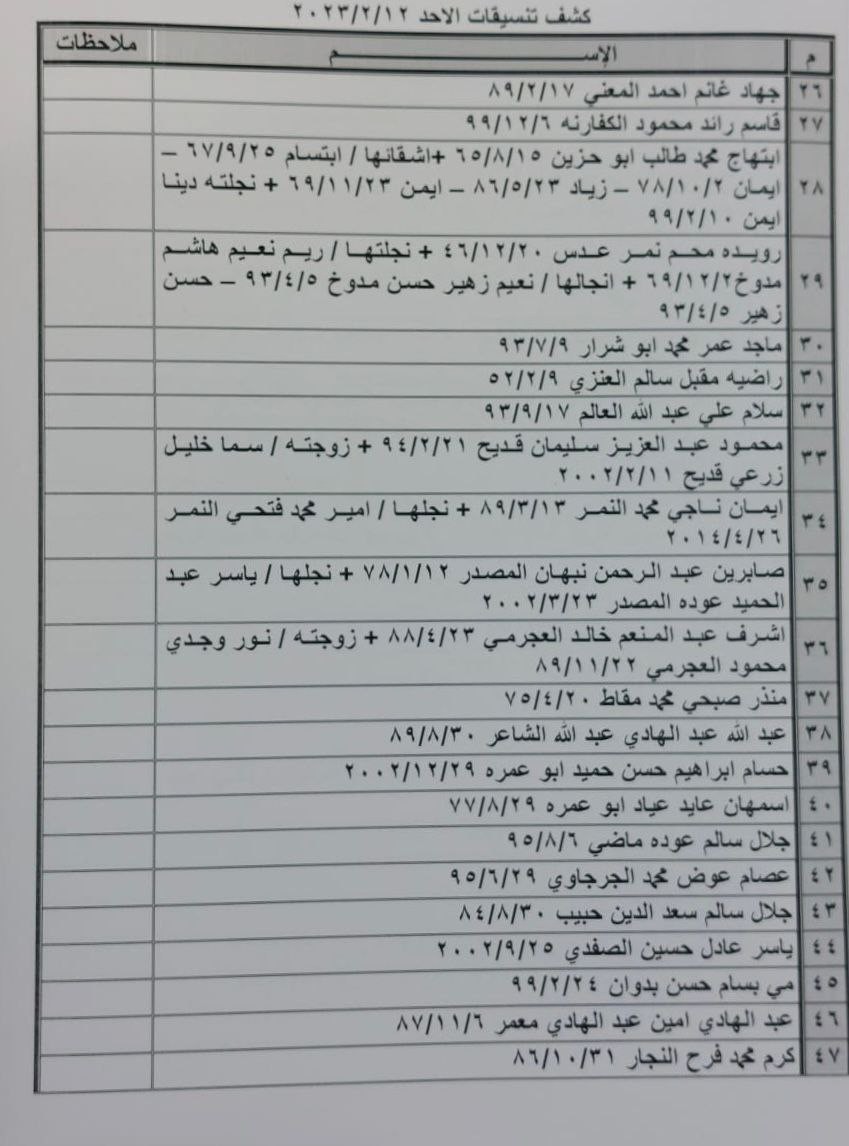 كشف تنسيقات الاحد ٢٠٢٣/٢/١٢
م الإســـــــم ملاحظات
٢٦ جهاد غانم احمد المعني ٨٩/٢/١٧
٢٧ قاسم رائد محمود الكفارنه ٩٩/١٢/٦
٢٨ ابتهاج محمد طالب ابو حزين ٦٥/٨/١٥ +اشقائها / ابتسام ٦٧/٩/٢٥ –
ايمان ٧٨/١٠/٢ – زياد ٨٦/٥/٢٣ – ايمن ٦٩/١١/٢٣ + نجلته دينا
ايمن ٩٩/٢/١٠
٢٩ رويده محم نمر عدس ٤٦/١٢/٢٠ + نجلتها / ريم نعيم هاشم
مدوخ٦٩/١٢/٢ + انجالها / نعيم زهير حسن مدوخ ٩٣/٤/٥ – حسن
زهير ٩٣/٤/٥
٣٠ ماجد عمر محمد ابو شرار ٩٣/٧/٩
٣١ راضيه مقبل سالم العنزي ٥٢/٢/٩
٣٢ سلام علي عبد الله العالم ٩٣/٩/١٧
٣٣ محمود عبد العزيز سليمان قديح ٩٤/٢/٢١ + زوجته / سما خليل
زرعي قديح ٢٠٠٢/٢/١١
٣٤ ايمان ناجي محمد النمر ٨٩/٣/١٣ + نجلها / امير محمد فتحي النمر
٢٠١٤/٤/٢٦
٣٥ صابرين عبد الرحمن نبهان المصدر ٧٨/١/١٢ + نجلها / ياسر عبد
الحميد عوده المصدر ٢٠٠٢/٣/٢٣
٣٦ اشرف عبد المنعم خالد العجرمي ٨٨/٤/٢٣ + زوجته / نور وجدي
محمود العجرمي ٨٩/١١/٢٢
٣٧ منذر صبحي محمد مقاط ٧٥/٤/٢٠
٣٨ عبد الله عبد الهادي عبد الله الشاعر ٨٩/٨/٣٠
٣٩ حسام ابراهيم حسن حميد ابو عمره ٢٠٠٢/١٢/٢٩
٤٠ اسمهان عايد عياد ابو عمره ٧٧/٨/٢٩
٤١ جلال سالم عوده ماضي ٩٥/٨/٦
٤٢ عصام عوض محمد الجرجاوي ٩٥/٦/٢٩
٤٣ جلال سالم سعد الدين حبيب ٨٤/٨/٣٠
٤٤ ياسر عادل حسين الصفدي ٢٠٠٢/٩/٢٥
٤٥ مي بسام حسن بدوان ٩٩/٢/٢٤
٤٦ عبد الهادي امين عبد الهادي معمر ٨٧/١١/٦
٤٧ كرم محمد فرح النجار ٨٦/١٠/٣١